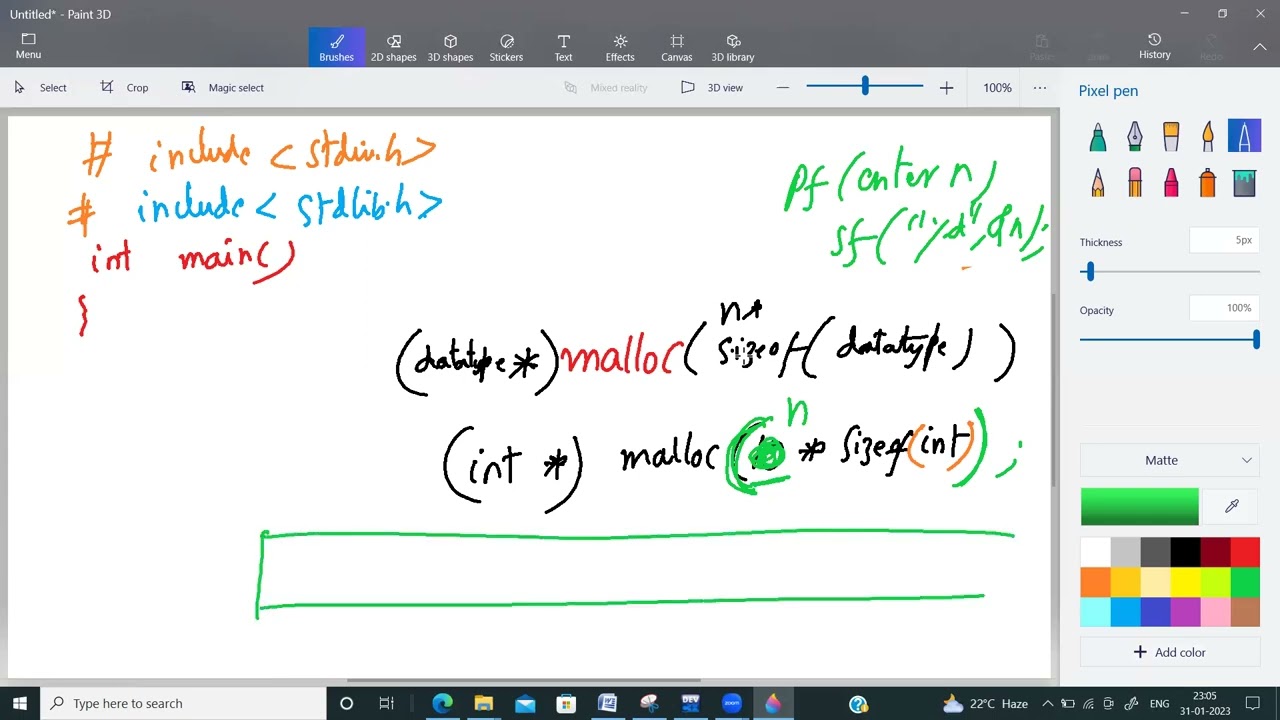 Untitled* - Paint 3D
Menu
Brushes
2D shapes
3D shapes
Stickers
Text
Effects
Canvas
3D library
Paste
History
Redo
Select
Crop
Magic select
Mixed reality
3D view
100%
Pixel pen
Thickness
5px
Opacity
100%
Matte
Add color
# include <stdio.h>
# include <stdlib.h>
int main()
}
Pf(enter n)
sf("%d",&n);
n*
(datatype *) malloc( sizeof(datatype) )
n
(int *) malloc ( * sizeof(int) ) ;
Type here to search
W
DEV
zoom
22°C Haze
ENG
23:05
31-01-2023